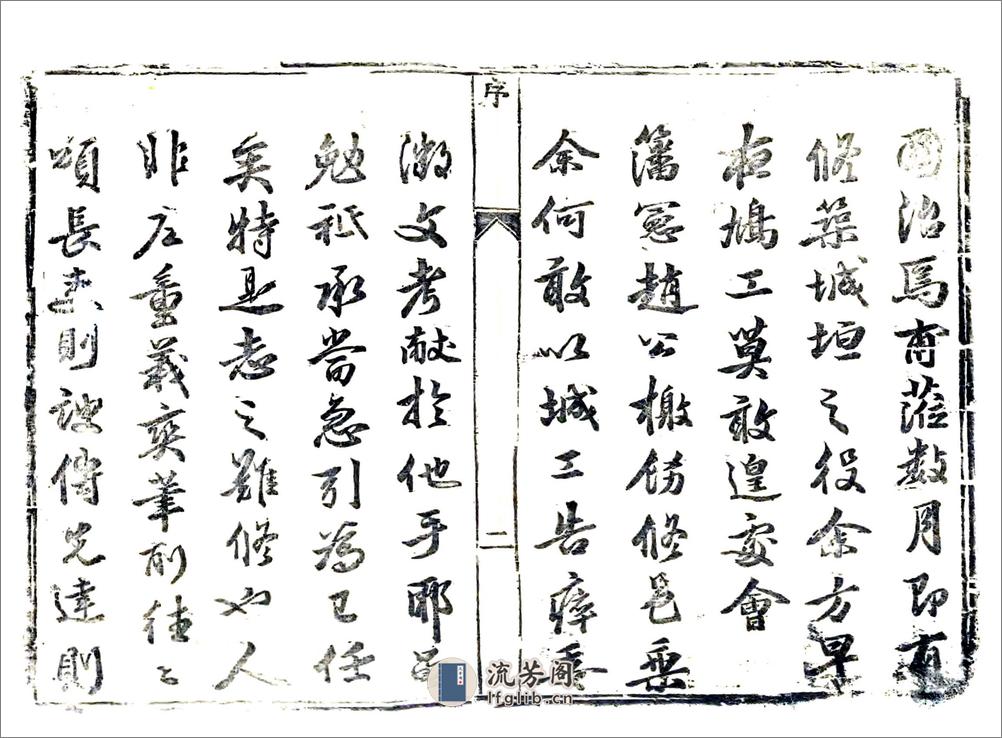 西治馬甫蒞數月即有
修築城垣之役余方早
夜鳩工莫敢遑寧會
藩憲趙公檄飭修邑乘
余何敢以城工告瘁委
序
二
徵文考獻於他手耶
勉祗承當急引為己任
矣特是志之難修也人
非左董義爽筆削往往
頌長吏則諛傳先達則
流芳阁
lfglib.cn